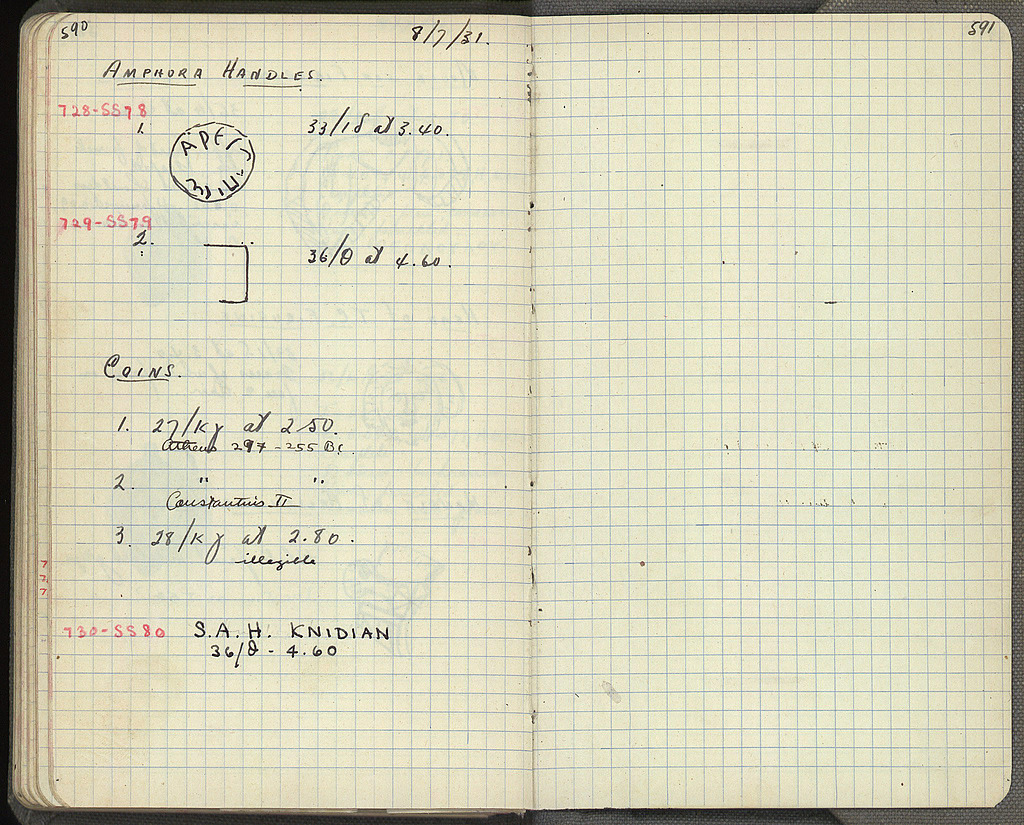 590
8/7/31.
AMPHORA HANDLES.
728-SS78
1.
33/ΙΣΤ at 3.40.
729-SS79
2.
36/Θ at 4.60.
COINS.
1. 27/ΚΓ at 2.50.
Athens 297-255 BC.
2. " "
Constantius II
3. 28/ΚΓ at 2.80.
illegible
730-SS80 S.A.H. KNIDIAN
36/Θ - 4.60
7
7
7
591